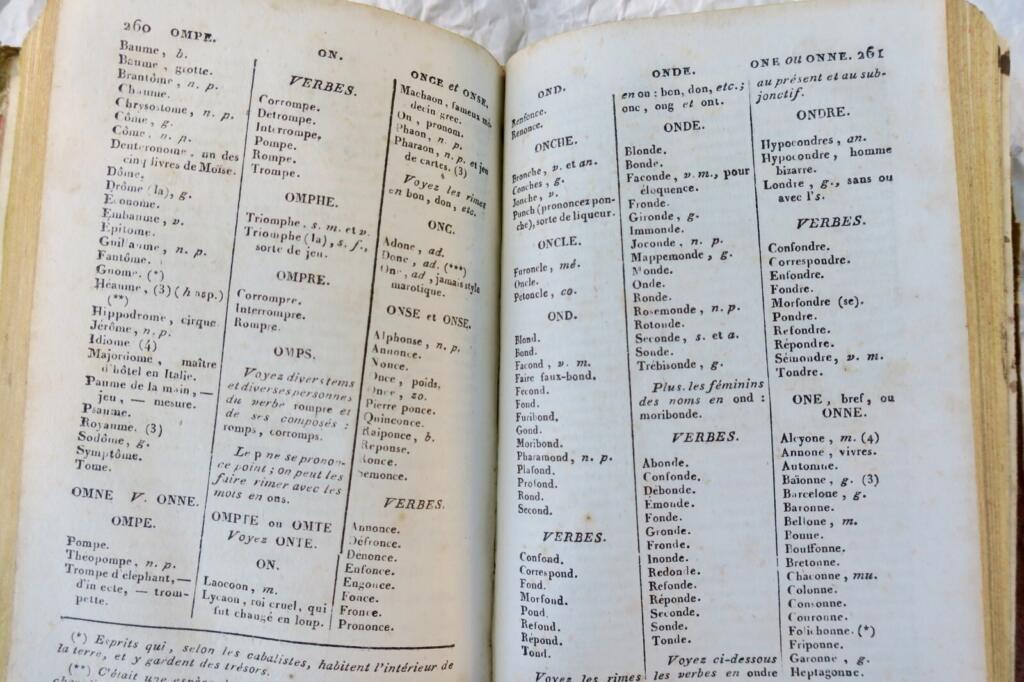 260 OMPE.
Baume, b.
Baume, grotte.
Brantôme, n. p.
Chaume.
Chrysostome, n. p.
Côme, g.
Côme, n. p.
Deuteronome, un des
cinq livres de Moïse.
Dôme.
Drôme (la), g.
Économe.
Embaume, v.
Épitome.
Guillaume, n. p.
Fantôme.
Gnome. (*)
Heaume, (3) (h asp.)
(**)
Hippodrome, cirque
Jérôme, n. p.
Idiome (4)
Majordome, maître
d'hôtel en Italie.
Paume de la main, —
jeu, — mesure.
Psaume.
Royaume. (3)
Sodôme, g.
Symptôme.
Tome.
OMNE V. ONNE.
OMPE.
Pompe.
Théopompe, n. p.
Trompe d'elephant, —
d'insecte, — trom-
pette.
ON.
VERBES.
Corrompe.
Detrompe.
Interrompe,
Pompe.
Rompe.
Trompe.
OMPHE.
Triomphe, s. m. et v.
Triomphe (la), s. f.,
sorte de jeu.
OMPRE.
Corrompre.
Interrompre.
Rompre.
OMPS.
Voyez divers tems
et diverses personnes
du verbe rompre et
de ses composés :
romps, corromps.
Le p ne se pronon-
ce point ; on peut les
faire rimer avec les
mots en ons.
OMPTE ou OMTE
Voyez ONTE.
ON.
Laocoon, m.
Lycaon, roi cruel, qui
fut changé en loup.
ONCE et ONSE.
Machaon, fameux mé-
decin grec.
On, pronom.
Phaon, n. p.
Pharaon, n. p. et jeu
de cartes. (3)
Voyez les rimes
en bon, don, etc.
ONC.
Adonc, ad.
Donc, ad. (***)
Onc, ad, jamais style
marotique.
ONSE et ONSE.
Alphonse, n. p.
Annonce.
Nonce.
Once, poids.
Once, zo.
Pierre ponce.
Quinconce.
Raiponce, b.
Réponse.
Ronce.
Semonce.
VERBES.
Annonce.
Défronce.
Dénonce.
Enfonce.
Engonce.
Fonce.
Fronce.
Prononce.
(*) Esprits qui, selon les cabalistes, habitent l'intérieur de
la terre, et y gardent des trésors.
(**) C'était une
OND.
Renfonce.
Renonce.
ONCHE.
Bronche, v. et an.
Conches, g.
Jonche, v.
Punch (prononcez pon-
che), sorte de liqueur.
ONCLE.
Furoncle, mé.
Oncle.
Pétoncle, co.
OND.
Blond.
Bond.
Facond, v. m.
Faire faux-bond.
Fecond.
Fond.
Furibond.
Gond.
Moribond.
Pharamond, n. p.
Plafond.
Profond.
Rond.
Second.
VERBES.
Confond.
Correspond.
Fond.
Morfond.
Pond.
Refond.
Répond.
Tond.
Voyez les rimes
ONDE.
en on : bon, don, etc.;
onc, ong et ont.
ONDE.
Blonde.
Bonde.
Faconde, v. m., pour
éloquence.
Fronde.
Gironde, g.
Immonde.
Joconde, n. p.
Mappemonde, g.
Monde.
Onde.
Ronde.
Rosemonde, n. p.
Rotonde.
Seconde, s. et a.
Sonde.
Trébisonde, g.
Plus les féminins
des noms en ond :
moribonde.
VERBES.
Abonde.
Confonde.
Débonde.
Émonde.
Fonde.
Gronde.
Fronde.
Inonde.
Redonde.
Refonde.
Réponde.
Seconde.
Sonde.
Tonde.
Voyez ci-dessous
les verbes en ondre
ONE ou ONNE. 261
au présent et au sub-
jonctif.
ONDRE.
Hypocondres, an.
Hypocondre, homme
bizarre.
Londre, g., sans ou
avec l's.
VERBES.
Confondre.
Correspondre.
Enfondre.
Fondre.
Morfondre (se).
Pondre.
Refondre.
Répondre.
Sémondre, v. m.
Tondre.
ONE, bref, ou
ONNE.
Alcyone, m. (4)
Annone, vivres.
Automne.
Baïonne, g. (3)
Barcelone, g.
Baronne.
Bellone, m.
Bonne.
Bouffonne.
Bretonne.
Chaconne, mu.
Colonne.
Consonne.
Couronne.
Folichonne. (*)
Friponne.
Garonne, g.
Heptagonne.